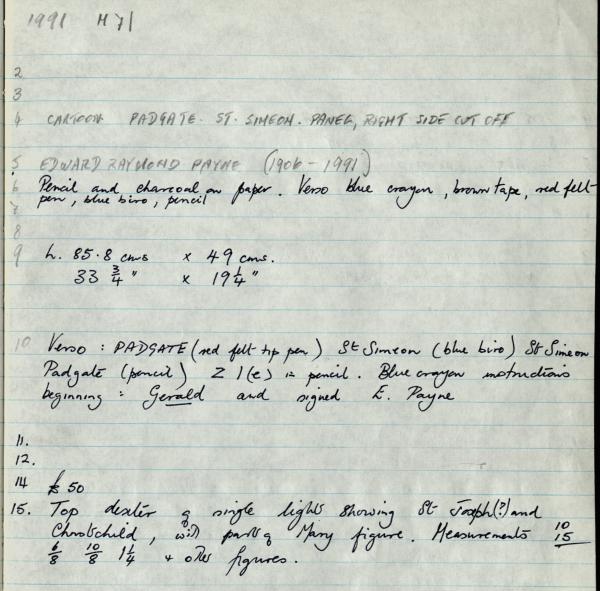 1991 H 71
2
3
4 CARTOON PADGATE. ST. SIMEON. PANEL, RIGHT SIDE CUT OFF
5 EDWARD RAYMOND PAYNE (1906-1991)
6 Pencil and charcoal on paper. Verso blue crayon, brown tape, red felt-
7 pen, blue biro, pencil
8
9 h. 85.8 cms x 49 cms.
33 3/4 " x 19 1/4 "
10 Verso: PADGATE (red felt tip pen) St Simeon (blue biro) St Simeon
Padgate (pencil) 2 1(e) in pencil. Blue crayon instructions
beginning: Gerald and signed E. Payne
11.
12.
14 £50
15. Top dexter of single lights showing St Joseph(?) and
Christchild, with part of Mary figure. Measurements 10/15
6/8 10/8 1 1/4 + other figures.